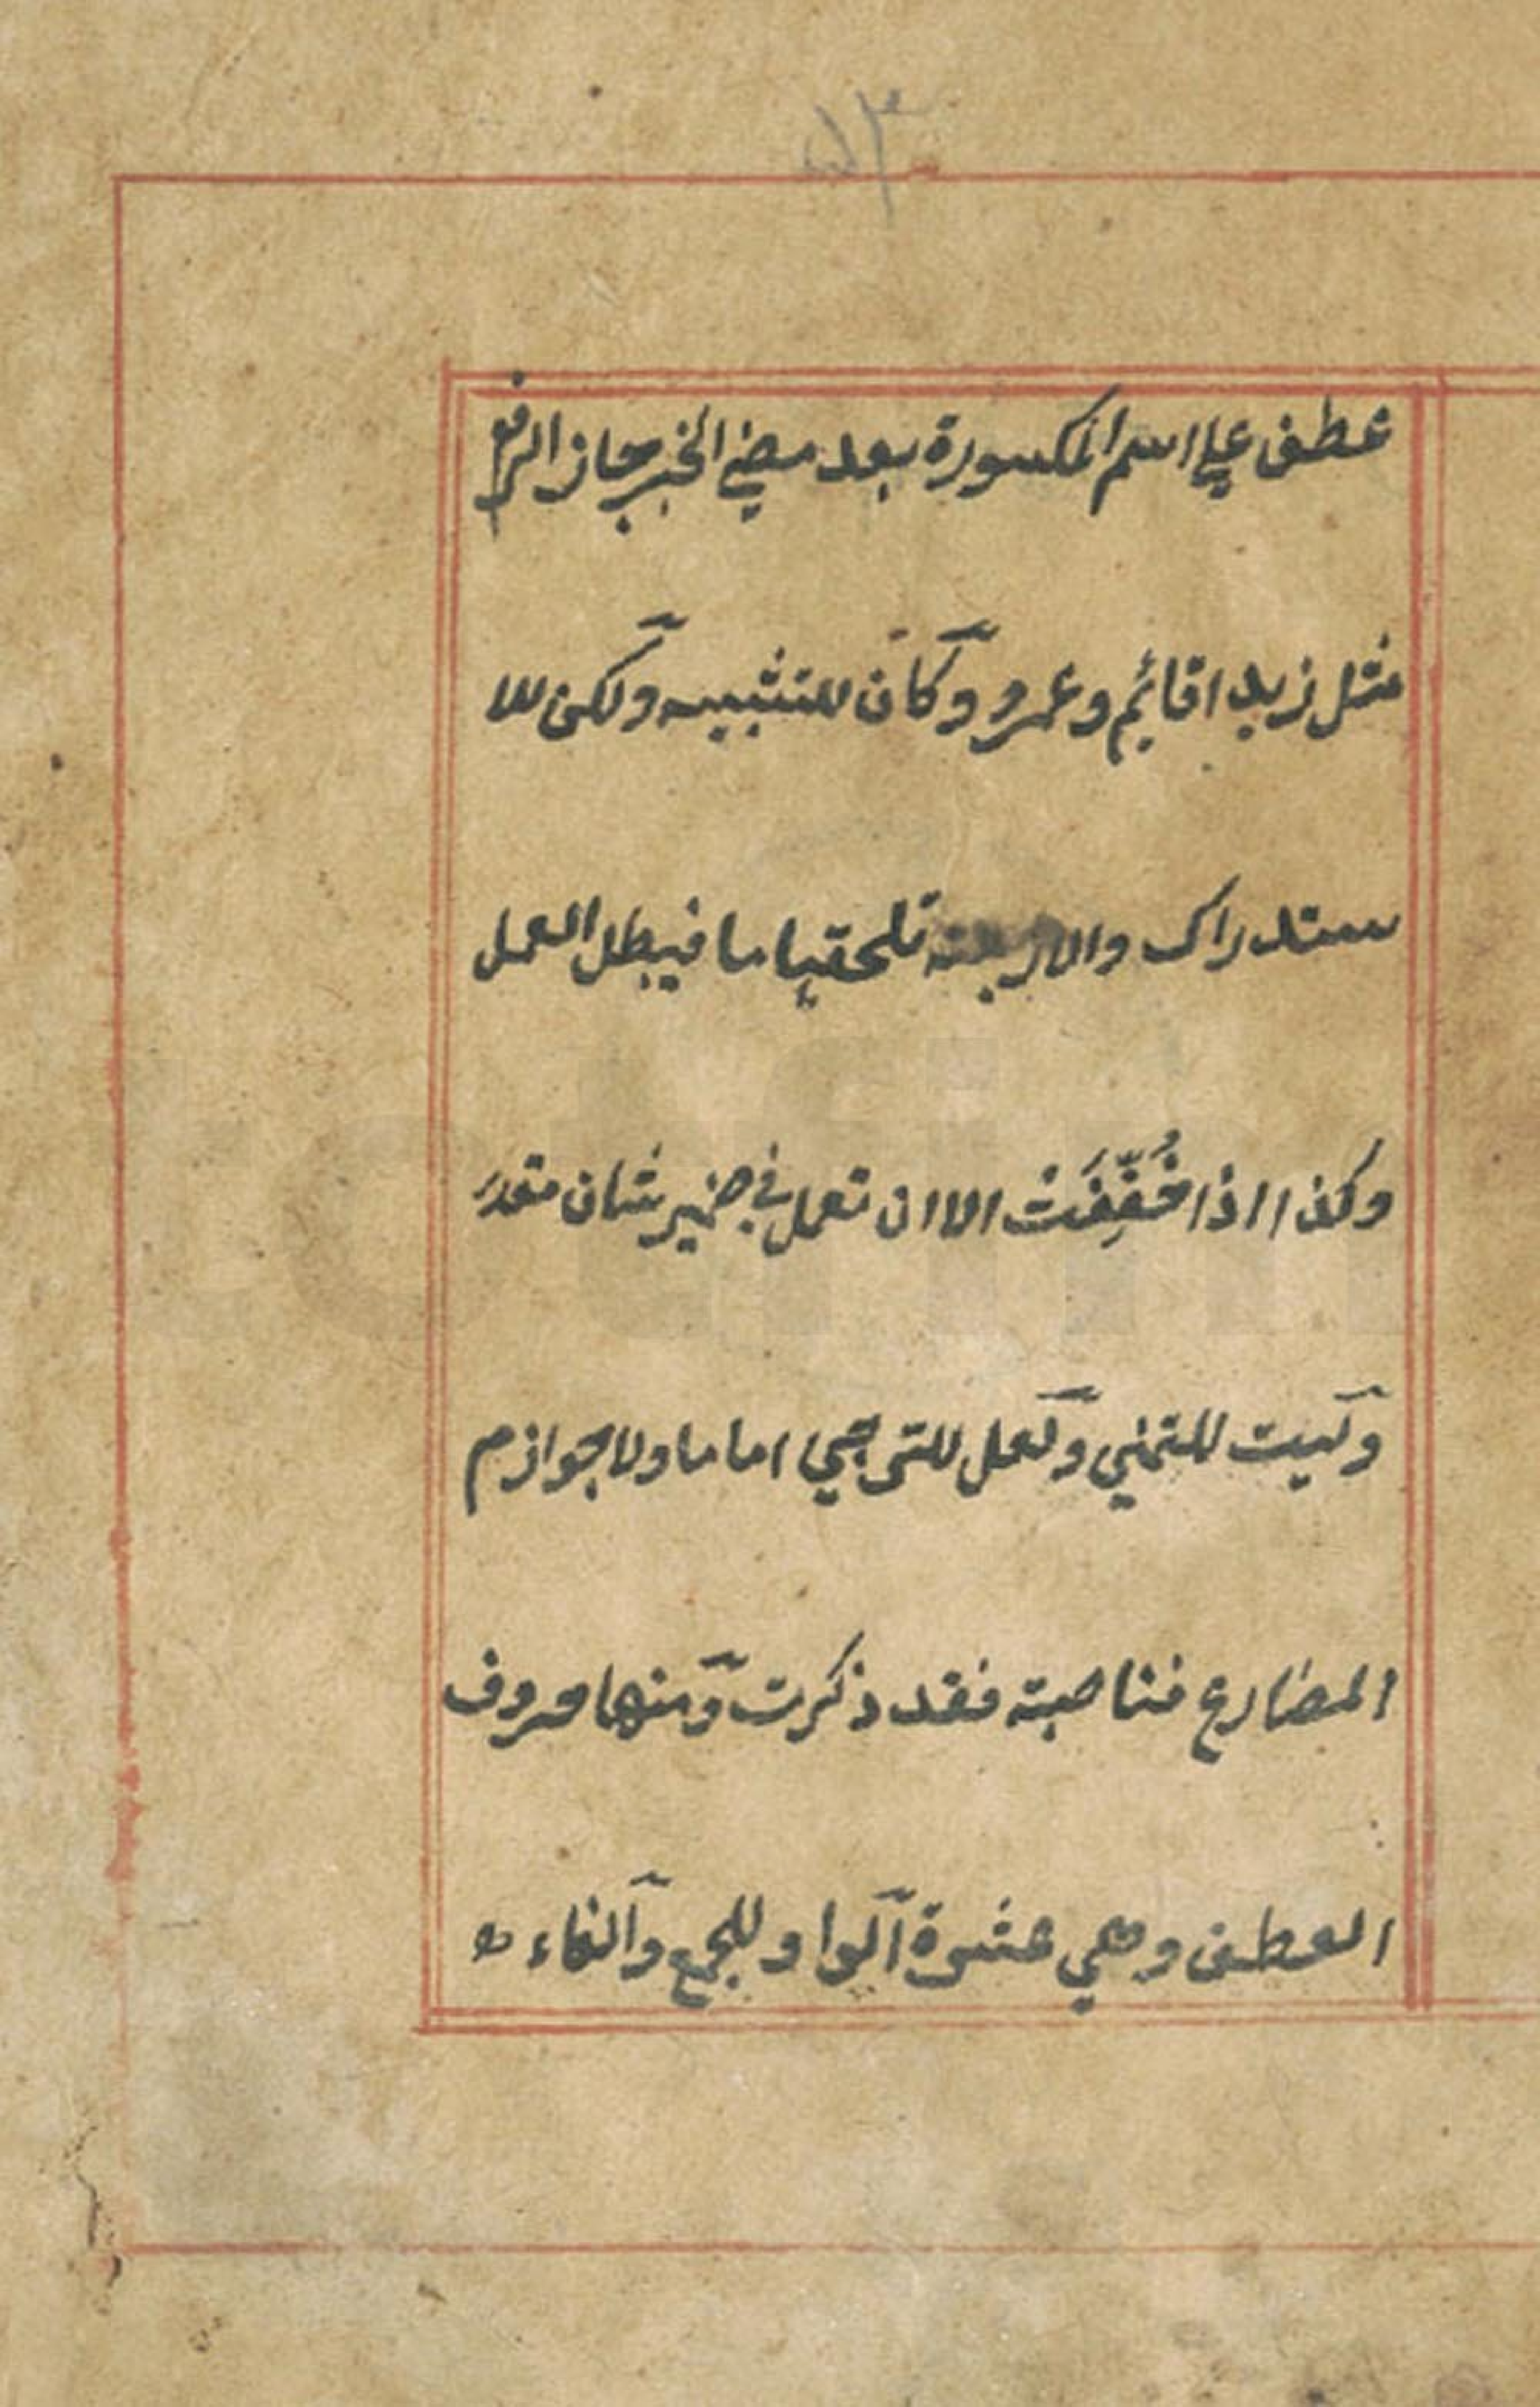 عطف علي اسم المكسورة بعد مضي الخبر جاز الرفع
مثل زيدا قائم وعمرو وكان للتشبيه ولكن للا
ستدراك والاربعة تلحقها ما فيبطل العمل
وكذا اذا خُفِّفَتْ الا ان تعمل في ضمير شان مقدر
وليت للتمني ولعل للترجي اما ما ولا جوازم
المضارع فناصبته فقد ذكرت ومنها حروف
العطف وهي عشرة الواو للجمع والفاء